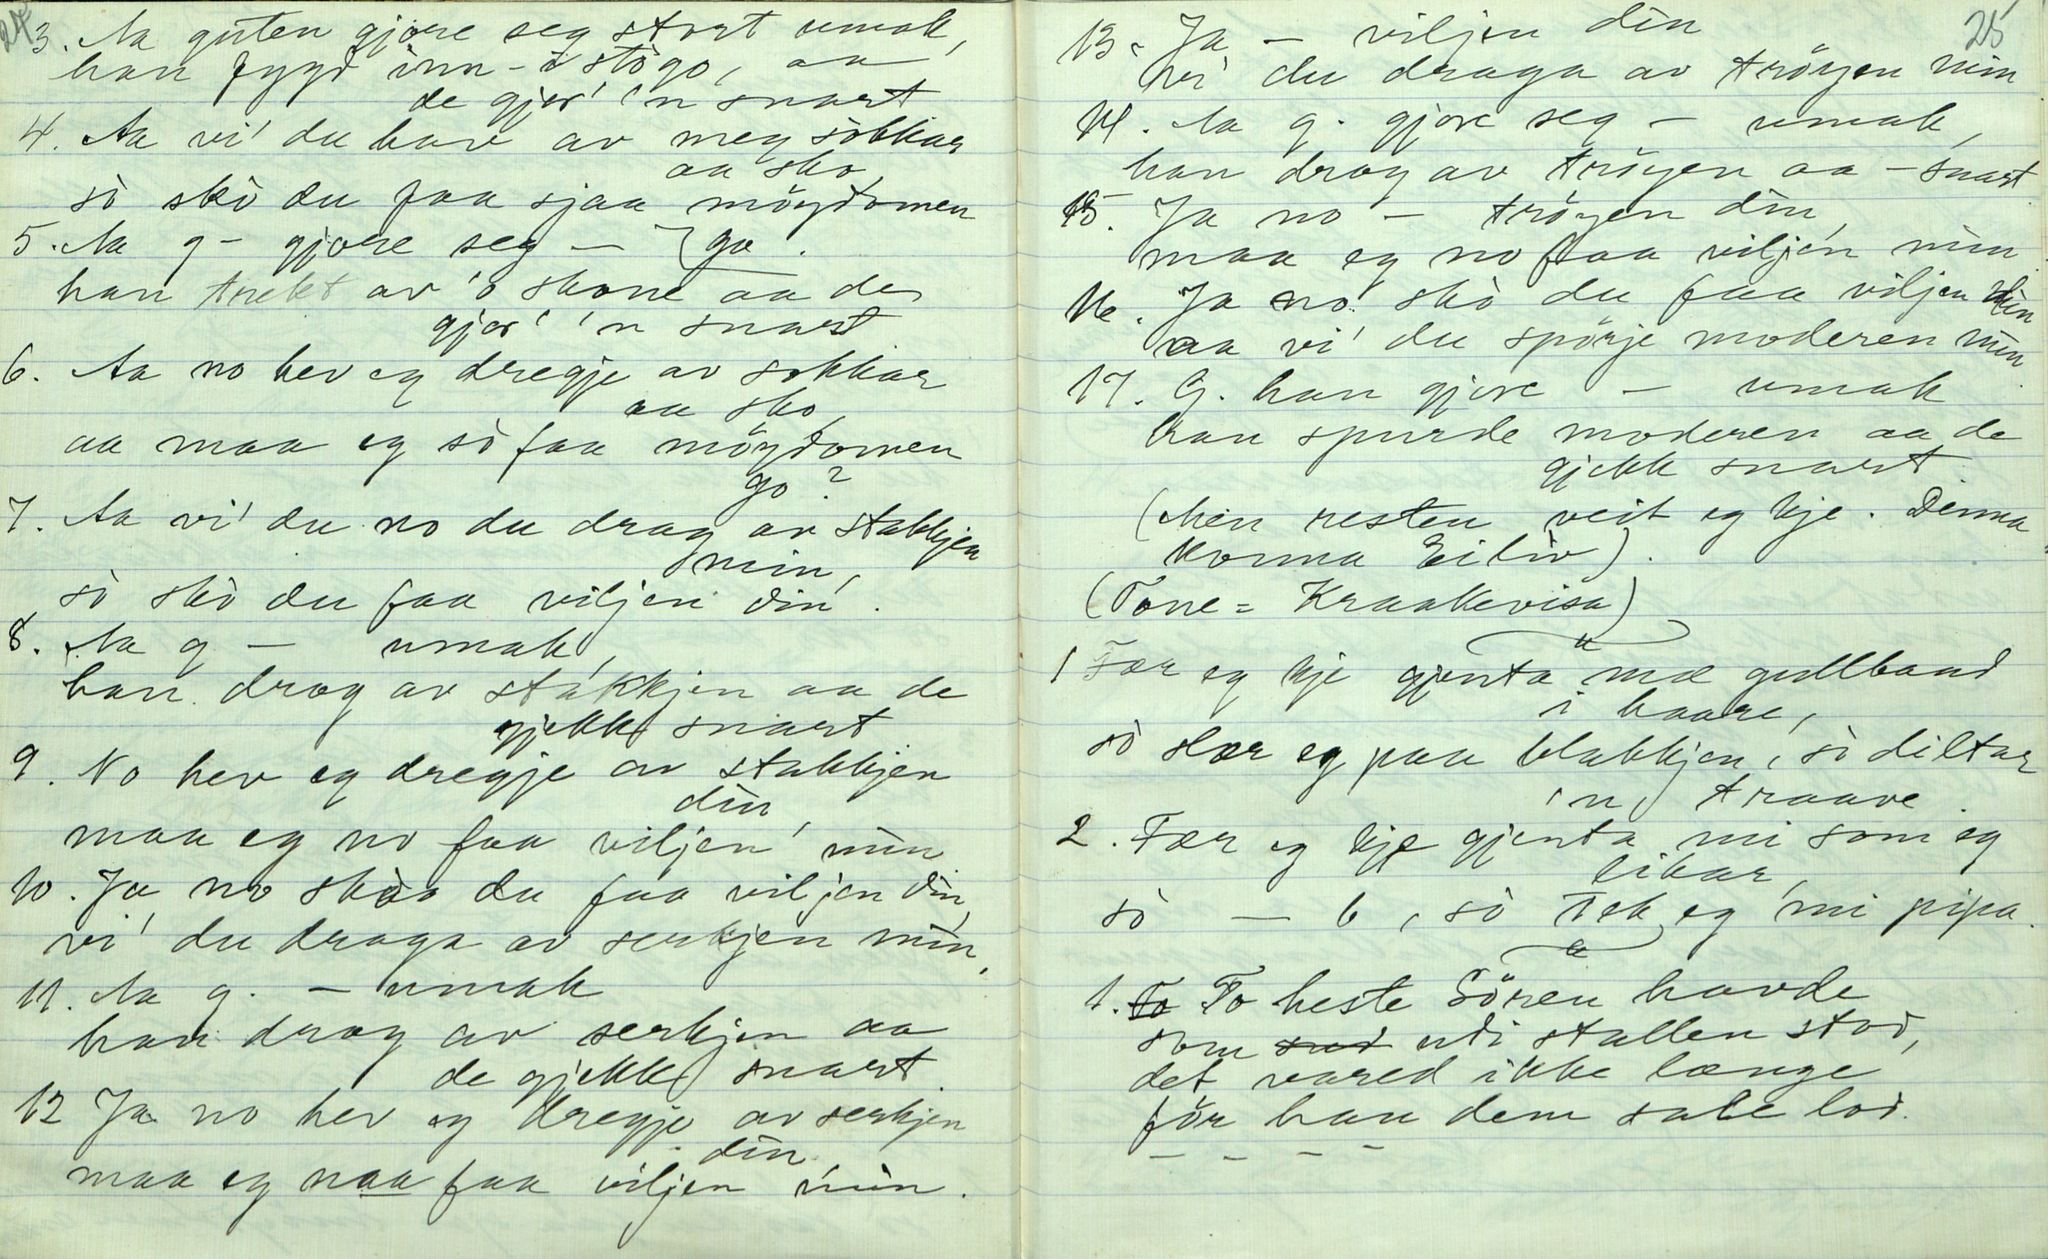 24
3. Aa guten gjore seg stort umak,
han fygd' inn i stògo, aa
de gjor' 'n snart
4. Aa vi' du hav av meg sokkar
aa sko,
sò skò du faa sjaa möydomen
5. Aa g - gjore seg — go.
han trekt av 'o skone aa de
gjor' 'n snart
6. Aa no hev eg dregje av sokkar
aa sko,
aa maa eg sò faa möydomen
go?
7. Aa vi' du no du drag av stakkjen
min,
sò skò du faa viljen din.
8. Aa g — umak,
han drog av stakkjen aa de
gjekk snart
9. No hev eg dregje av stakkjen
din
maa eg no faa viljen min
10. Ja no skòo du faa viljen din,
vi' du draga av serkjen min,
11. Aa g. — umak
han drog av serkjen aa
de gjekk snart.
12 Ja no hev eg dregje av serkjen
din
maa eg naa faa viljen min.
25
13. Ja — viljen din
vi' du draga av tröyen min
14. Aa g. gjore seg — umak,
han drog av tröyen aa — snart
15. Ja no — tröyen din,
maa eg no faa viljen min
16. Ja no skò du faa viljen din
aa vi' du spörje moderen min.
17. G. han gjore — umak
han spurde moderen aa de
gjekk snart
(Men resten veit eg kje. Denna
konna Eiliv).
(Tone = Kraakevisa)
1 Fær eg kje gjenta mæ gullband
i haare,
sò slær eg paa blakkjen, sò diltar
'n traave.
2. Fær eg kje gjenta mi som eg
likar,
sò — b, sò tek eg mi pipa.
1. To To heste Sören havde
som sud udi stallen stod,
det vared ikke længe
för han dem sale lod.
— — — —